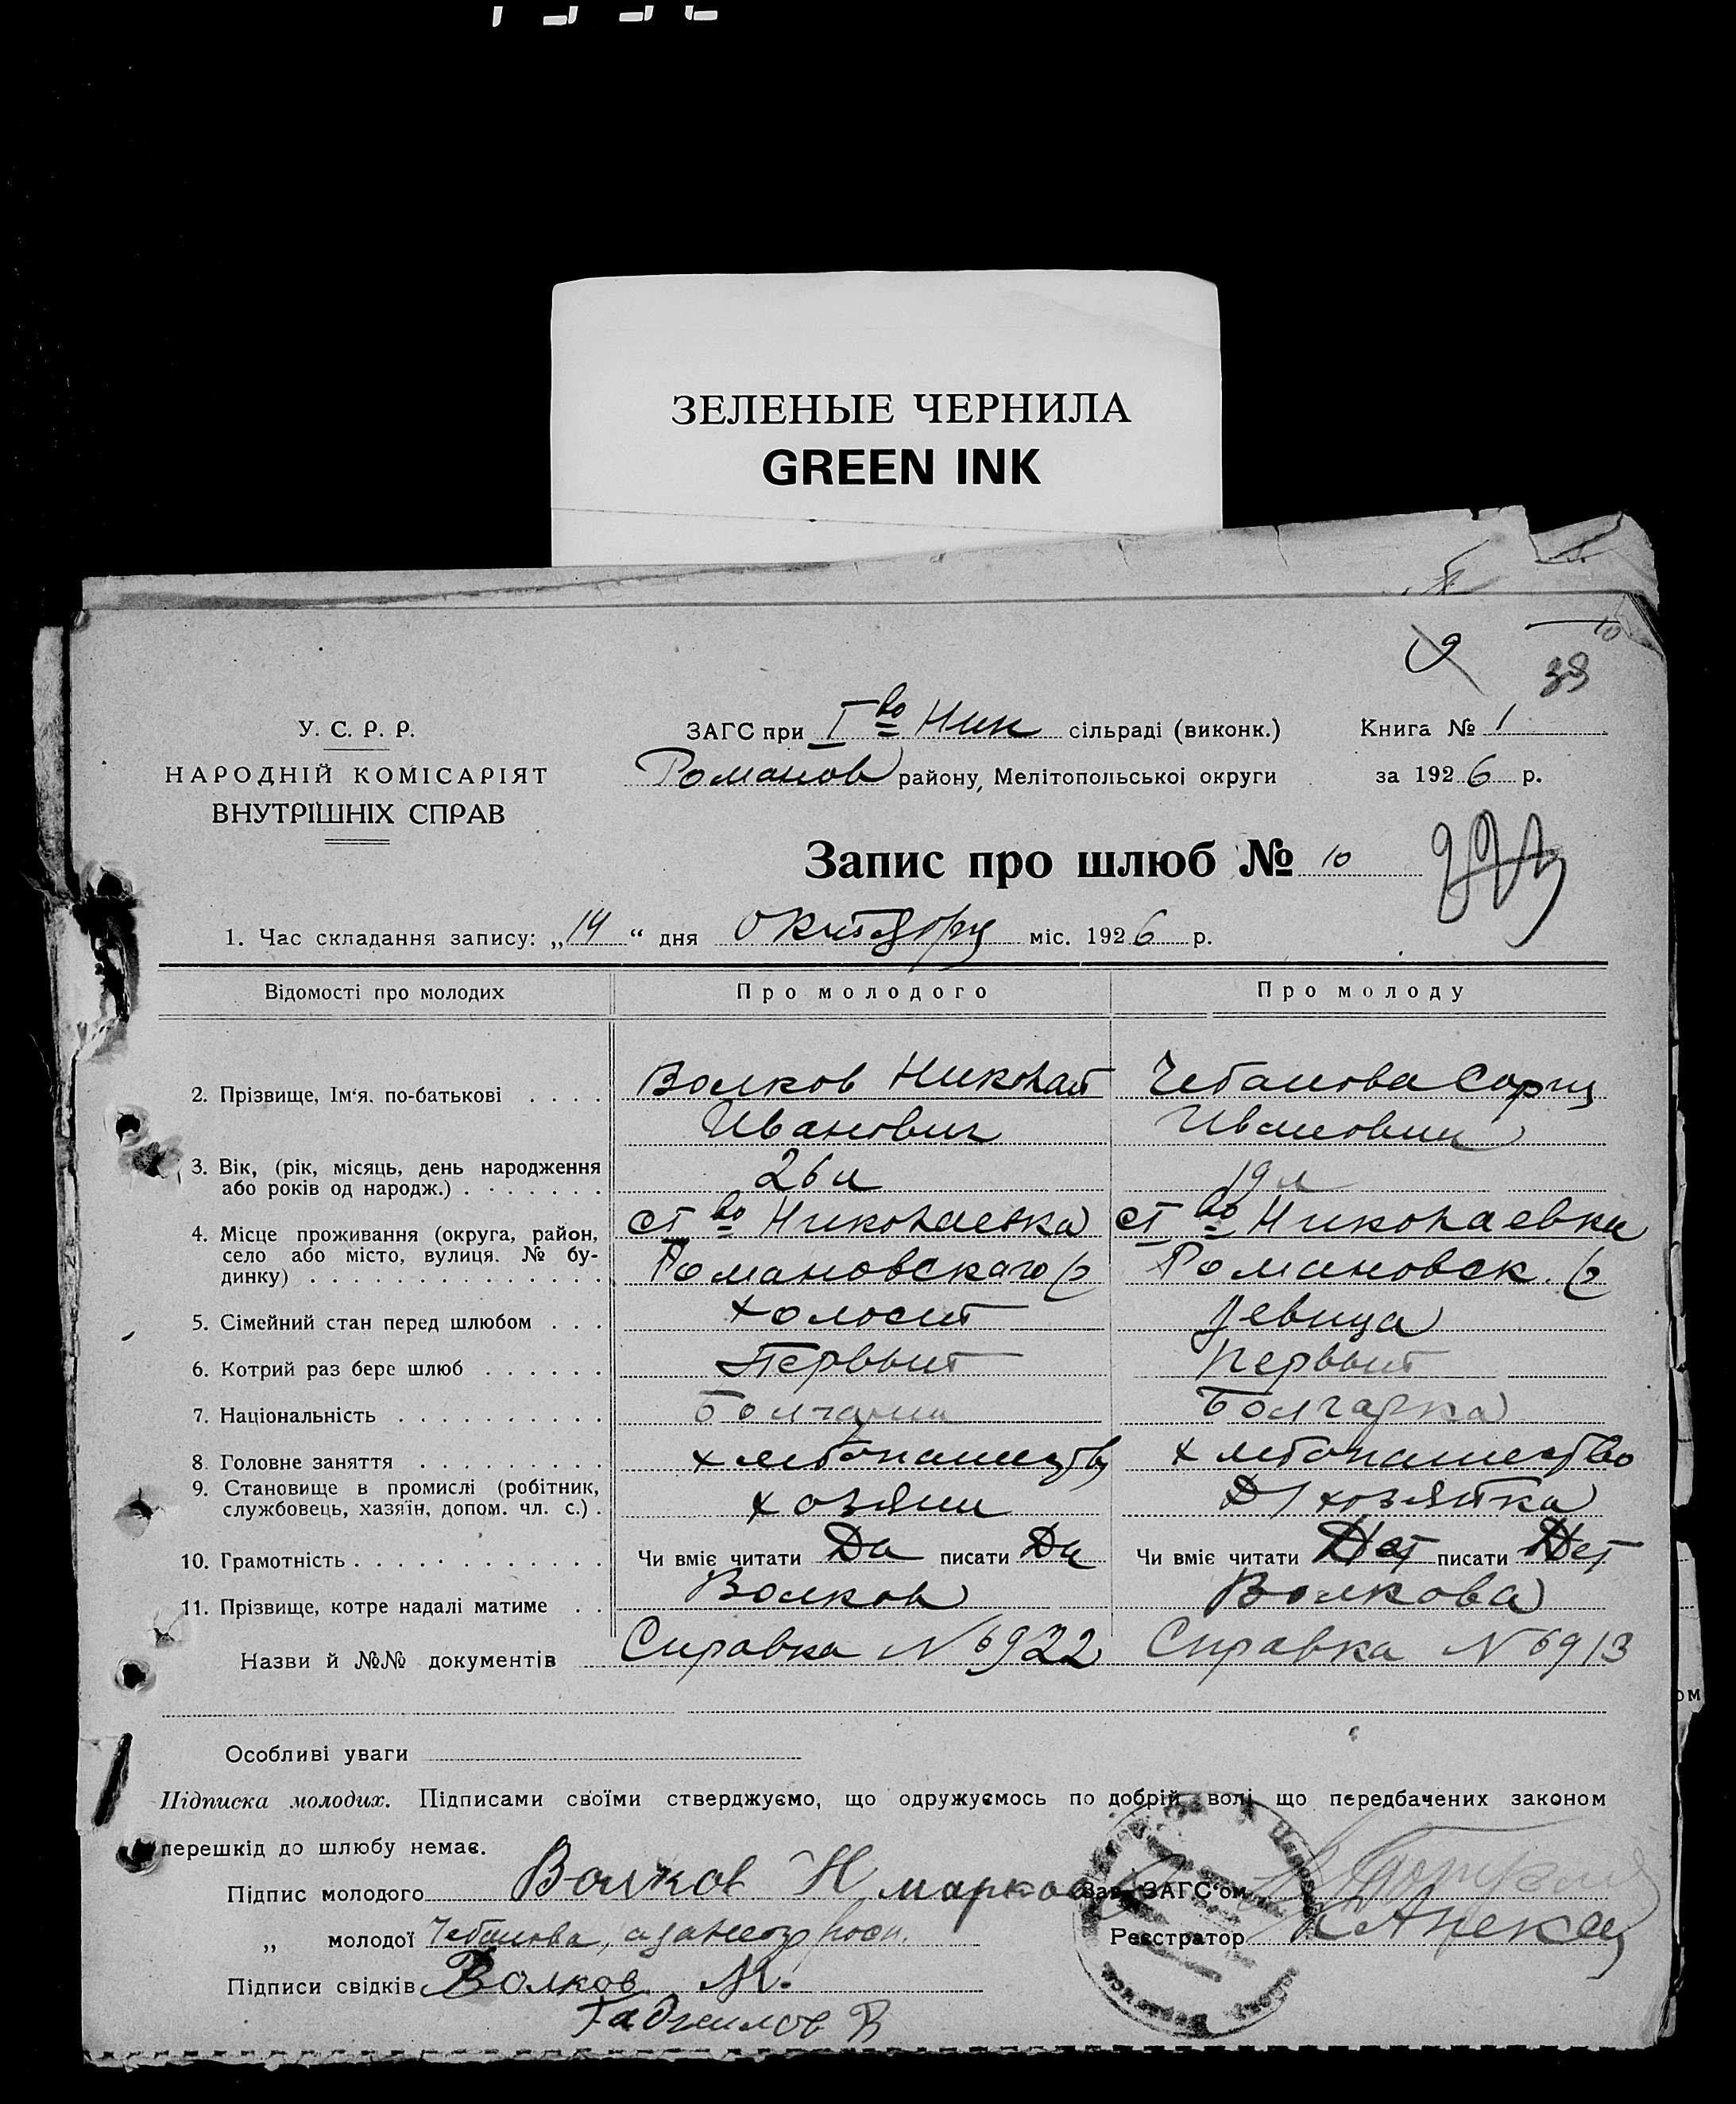 ЗЕЛЕНЫЕ ЧЕРНИЛА
GREEN INK
10
9
39
У. С. Р. Р.
НАРОДНІЙ КОМІСАРІЯТ
ВНУТРІШНІХ СПРАВ
ЗАГС при I во Ник сільраді (виконк.)
Романов району, Мелітопольської округи
Книга № 1
за 1926 р.
Запис про шлюб № 10
1. Час складання запису: „14“ дня октября міс. 1926 р.
Відомості про молодих Про молодого Про молоду
2. Прізвище, Ім'я, по-батькові . . . . Волков Николай Чебанова
Иванович Ивановна
3. Вік, (рік, місяць, день народження або років од народж.) . . . . . . . 26 л 19 л
4. Місце проживання (округа, район, село або місто, вулиця. № будинку) . . . . . . . . . . . . . . ст во Николаевка ст во Николаевка
Романовскаго р Романовск. р
5. Сімейний стан перед шлюбом . . . холост девица
6. Котрий раз бере шлюб . . . . . . Первый первый
7. Національність . . . . . . . . . . Болгарин Болгарка
8. Головне заняття . . . . . . . . . хлебопашество хлебопашество
9. Становище в промислі (робітник, службовець, хазяїн, допом. чл. с.) . хозяин Д/хозяйка
10. Грамотність . . . . . . . . . . . . Чи вміє читати Да писати Да Чи вміє читати Нет писати Нет
11. Прізвище, котре надалі матиме . . Волков Волкова
Назви й №№ документів Справка N 6922 Справка N 6913
Особливі уваги
Підписка молодих. Підписами своїми стверджуємо, що одружуємось по добрій волі що передбачених законом
перешкід до шлюбу немає.
Підпис молодого Волков Н Зав. ЗАГС'ом
„ молодої Чебанова, а за неогр Реєстратор
Підписи свідків Волков М.
Гаджилов В